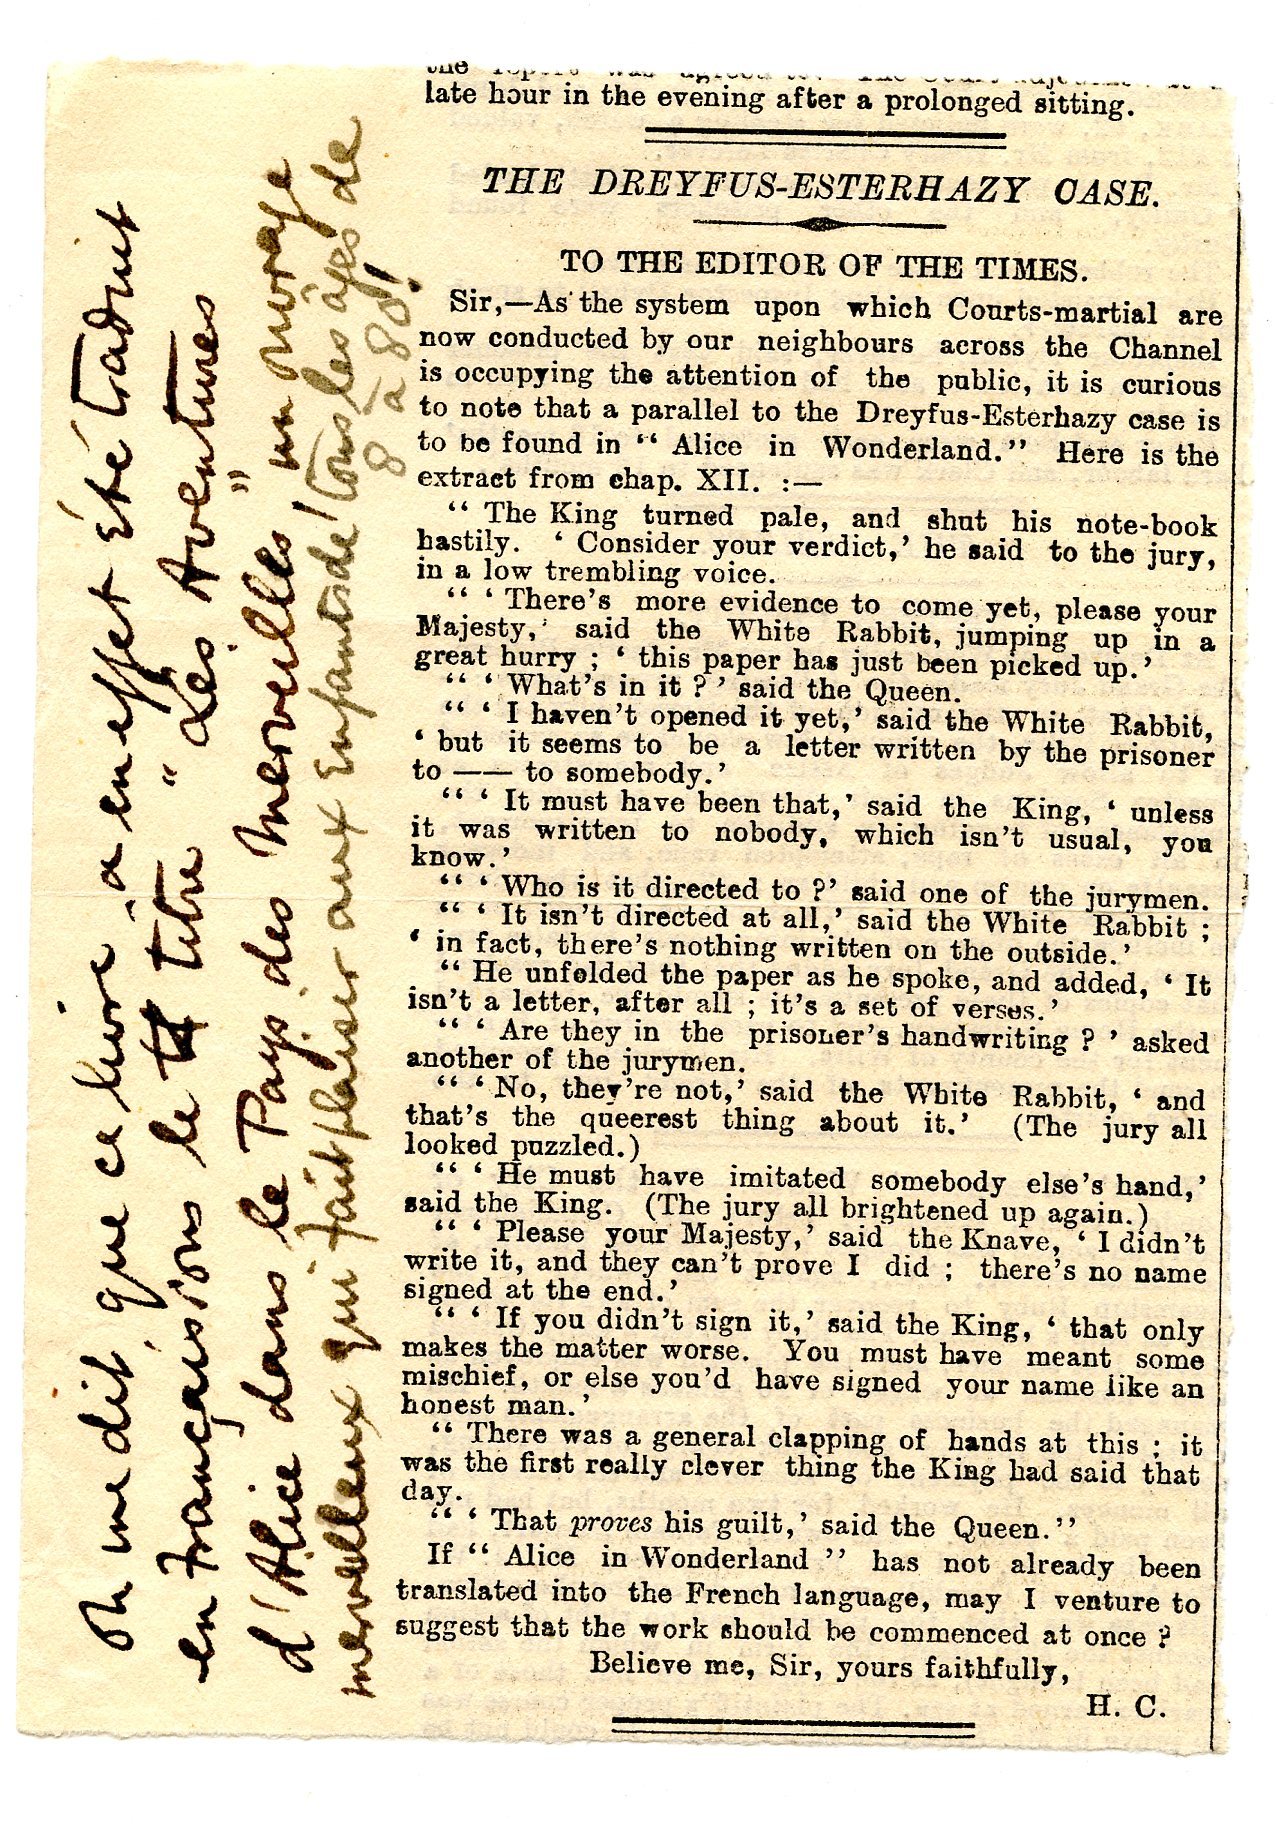 late hour in the evening after a prolonged sitting.
THE DREYFUS-ESTERHAZY CASE.
TO THE EDITOR OF THE TIMES.
Sir,—As the system upon which Courts-martial are
now conducted by our neighbours across the Channel
is occupying the attention of the public, it is curious
to note that a parallel to the Dreyfus-Esterhazy case is
to be found in “ Alice in Wonderland.” Here is the
extract from chap. XII. :—
“ The King turned pale, and shut his note-book
hastily. ‘ Consider your verdict,’ he said to the jury,
in a low trembling voice.
“ ‘ There’s more evidence to come yet, please your
Majesty,’ said the White Rabbit, jumping up in a
great hurry ; ‘ this paper has just been picked up.’
“ ‘ What’s in it ? ’ said the Queen.
“ ‘ I haven’t opened it yet,’ said the White Rabbit,
‘ but it seems to be a letter written by the prisoner
to —— to somebody.’
“ ‘ It must have been that,’ said the King, ‘ unless
it was written to nobody, which isn’t usual, you
know.’
“ ‘ Who is it directed to ?’ said one of the jurymen.
“ ‘ It isn’t directed at all,’ said the White Rabbit ;
‘ in fact, there’s nothing written on the outside.’
“ He unfolded the paper as he spoke, and added, ‘ It
isn’t a letter, after all ; it’s a set of verses.’
“ ‘ Are they in the prisoner’s handwriting ? ’ asked
another of the jurymen.
“ ‘ No, they’re not,’ said the White Rabbit, ‘ and
that’s the queerest thing about it.’ (The jury all
looked puzzled.)
“ ‘ He must have imitated somebody else’s hand,’
said the King. (The jury all brightened up again.)
“ ‘ Please your Majesty,’ said the Knave, ‘ I didn’t
write it, and they can’t prove I did ; there’s no name
signed at the end.’
“ ‘ If you didn’t sign it,’ said the King, ‘ that only
makes the matter worse. You must have meant some
mischief, or else you’d have signed your name like an
honest man.’
“ There was a general clapping of hands at this ; it
was the first really clever thing the King had said that
day.
“ ‘ That proves his guilt,’ said the Queen.”
If “ Alice in Wonderland ” has not already been
translated into the French language, may I venture to
suggest that the work should be commenced at once ?
Believe me, Sir, yours faithfully,
H. C.
On me dit que ce livre a en effet été traduit
en français sous le titre "Les Aventures
d'Alice dans le Pays des Merveilles", un ouvrage
merveilleux qui fait plaisir aux Enfants de tous les âges de
8 à 80!